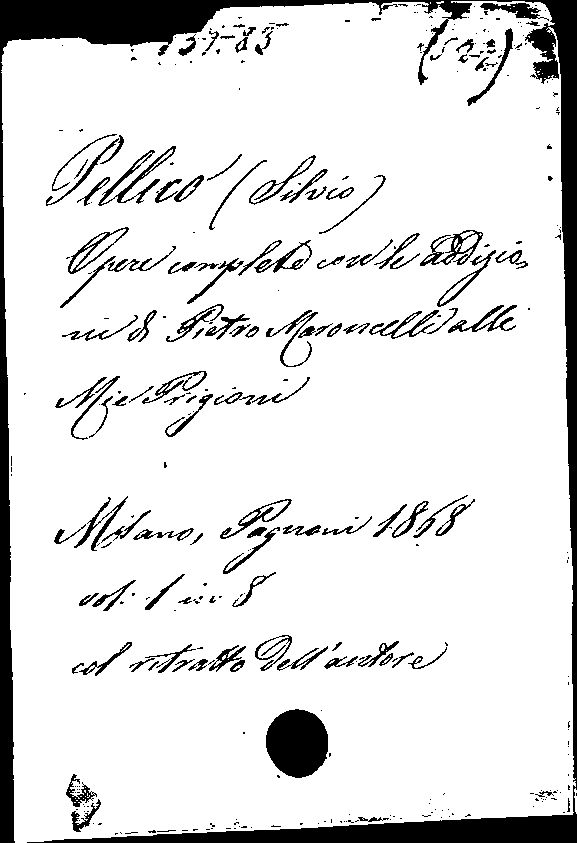 Pellico (Silvio)
Opere complete con le addizio-
ni di Pietro Maroncelli alle
Mie Prigioni
Milano, Pagnoni
vol. 1 in 8
col ritratto dell'autore